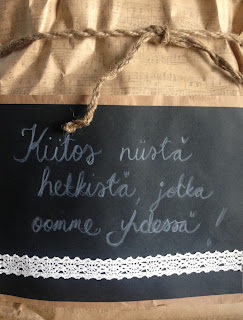 Kiitos niistä
hetkistä, jotka
oomme yhdessä!